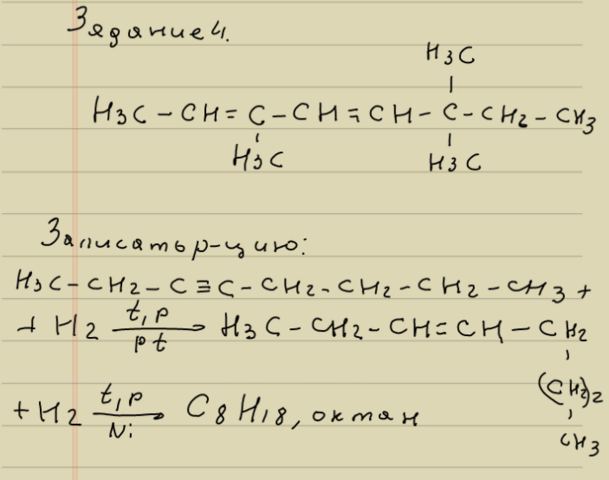 Задание 4.
H3C
H3C - CH = C - CH = CH - C - CH2 - CH3
H3C H3C
Записать р-цию:
H3C - CH2 - C ≡ C - CH2 - CH2 - CH2 - CH3 +
+ H2 t,p pt → H3C - CH2 - CH = CH - CH2
(CH2)2
+ H2 t,p Ni → C8H18, октан
CH3